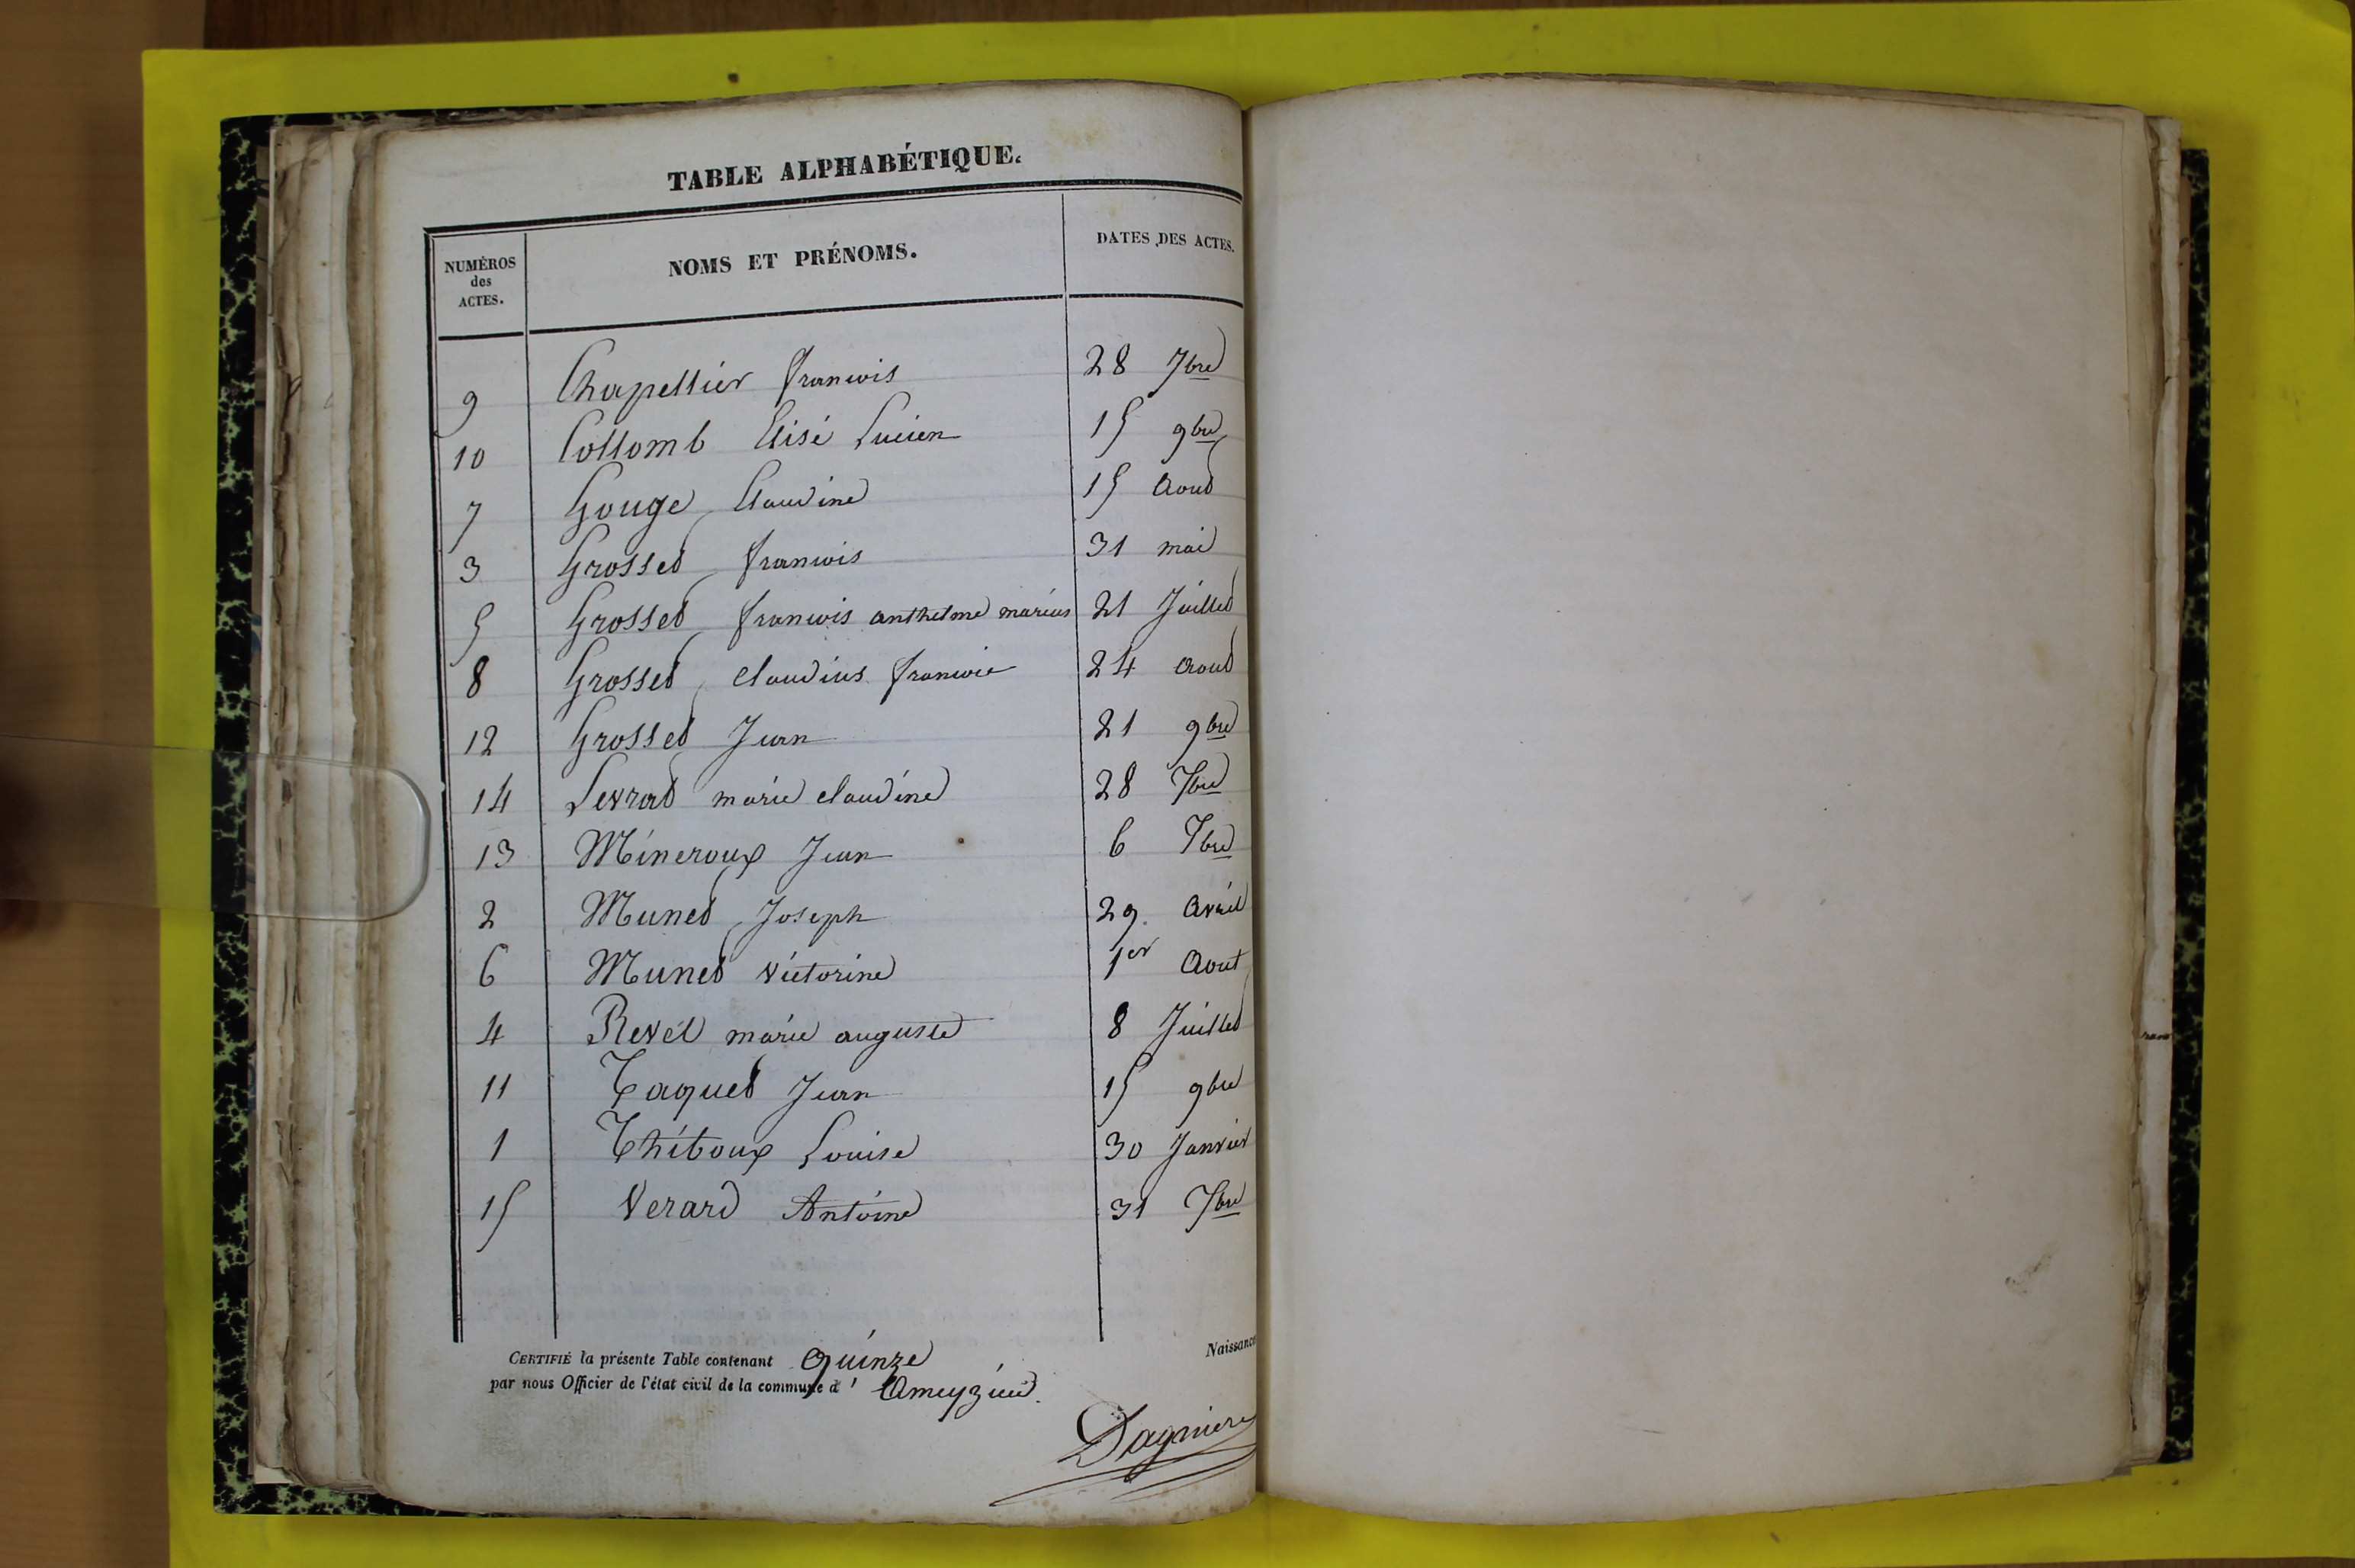 TABLE ALPHABÉTIQUE.
NUMÉROS des ACTES. NOMS ET PRÉNOMS. DATES DES ACTES.
9 Chapellier francois 28 7bre
10 Collomb Elisé Lucien 15 9bre
7 Gouge Claudine 15 Aout
3 Grosset francois 31 mai
5 Grosset francois anthelme marius 21 Juillet
8 Grosset Claudius francois 24 Aout
12 Grosset Jean 21 9bre
14 Levrat marie claudine 28
13 Mineroux Jean 6
2 Munet Joseph 29. Avril
6 Munet Victorine 1er Aout
4 Revel marie auguste 8 Juillet
11 Taquet Jean 15 9bre
1 Thiboux Louise 30 Janvier
15 Verard Antoine 31
CERTIFIÉ la présente Table contenant quinze Naissance
par nous Officier de l'état civil de la commune d' Ameyzieu.